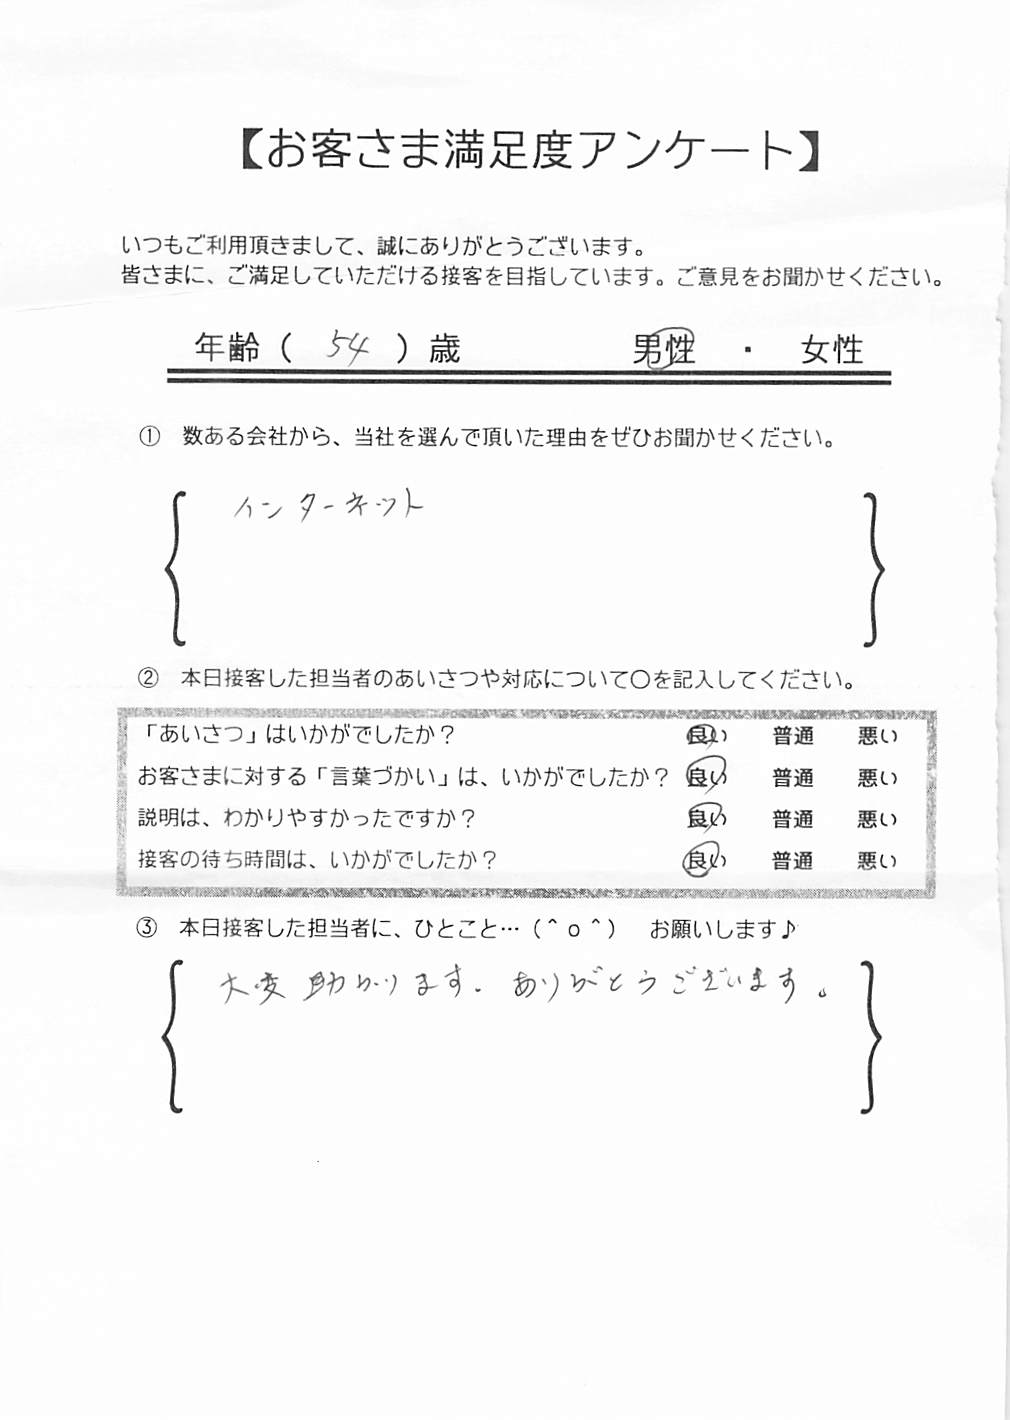 【お客さま満足度アンケート】
いつもご利用頂きまして、誠にありがとうございます。
皆さまに、ご満足していただける接客を目指しています。ご意見をお聞かせください。
年齢（ 54 ）歳 男性 ・ 女性
① 数ある会社から、当社を選んで頂いた理由をぜひお聞かせください。
インターネット
② 本日接客した担当者のあいさつや対応について〇を記入してください。
「あいさつ」はいかがでしたか？ 良い 普通 悪い
お客さまに対する「言葉づかい」は、いかがでしたか？ 良い 普通 悪い
説明は、わかりやすかったですか？ 良い 普通 悪い
接客の待ち時間は、いかがでしたか？ 良い 普通 悪い
③ 本日接客した担当者に、ひとこと…（＾ｏ＾） お願いします♪
大変助かります。ありがとうございます。